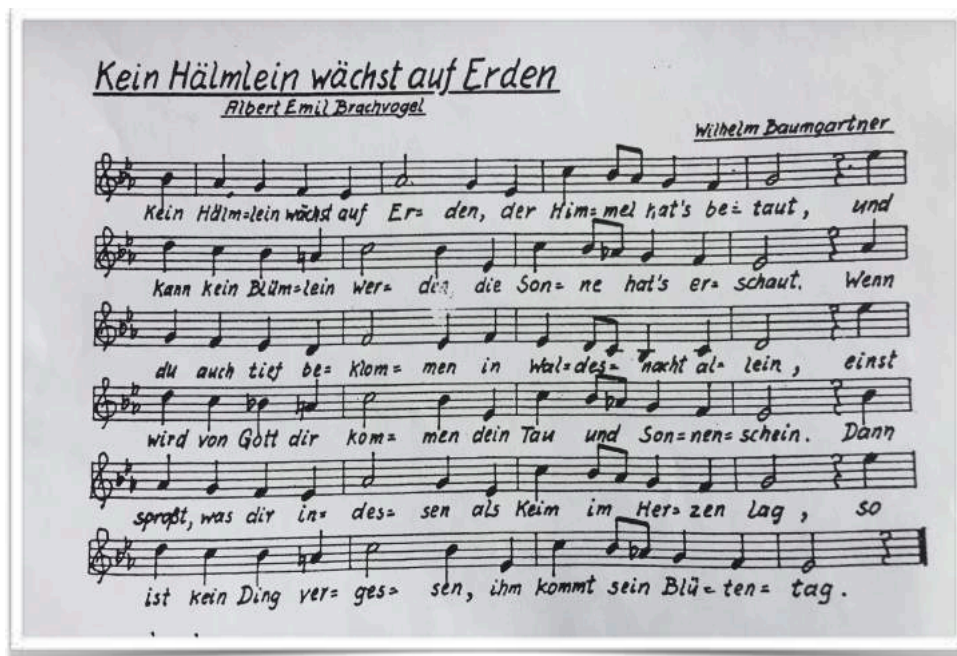 Kein Hälmlein wächst auf Erden
Albert Emil Brachvogel
Wilhelm Baumgartner
Kein Hälm=lein wächst auf Er= den, der Him= mel hat's be= taut, und
kann kein Blüm=lein wer= den, die Son= ne hat's er= schaut. Wenn
du auch tief be= klom= men in Wal=des= nacht al= lein, einst
wird von Gott dir kom= men dein Tau und Son=nen= schein. Dann
sproßt, was dir in= des= sen als Keim im Her= zen lag, so
ist kein Ding ver= ges= sen, ihm kommt sein Blü= ten= tag.